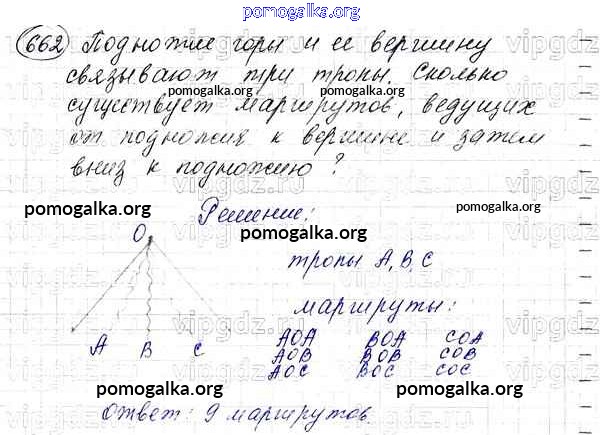 pomogalka.org
662 Подножие горы и ее вершину
связывают три тропы. Сколько
существует маршрутов, ведущих
от подножия к вершине и затем
вниз к подножию?
pomogalka.org Решение: pomogalka.org
O pomogalka.org
тропы A, B, C
маршруты:
A B C
AOA BOA COA
AOB BOB COB
AOC BOC COC
pomogalka.org pomogalka.org
Ответ: 9 маршрутов.
vipgdz.ru